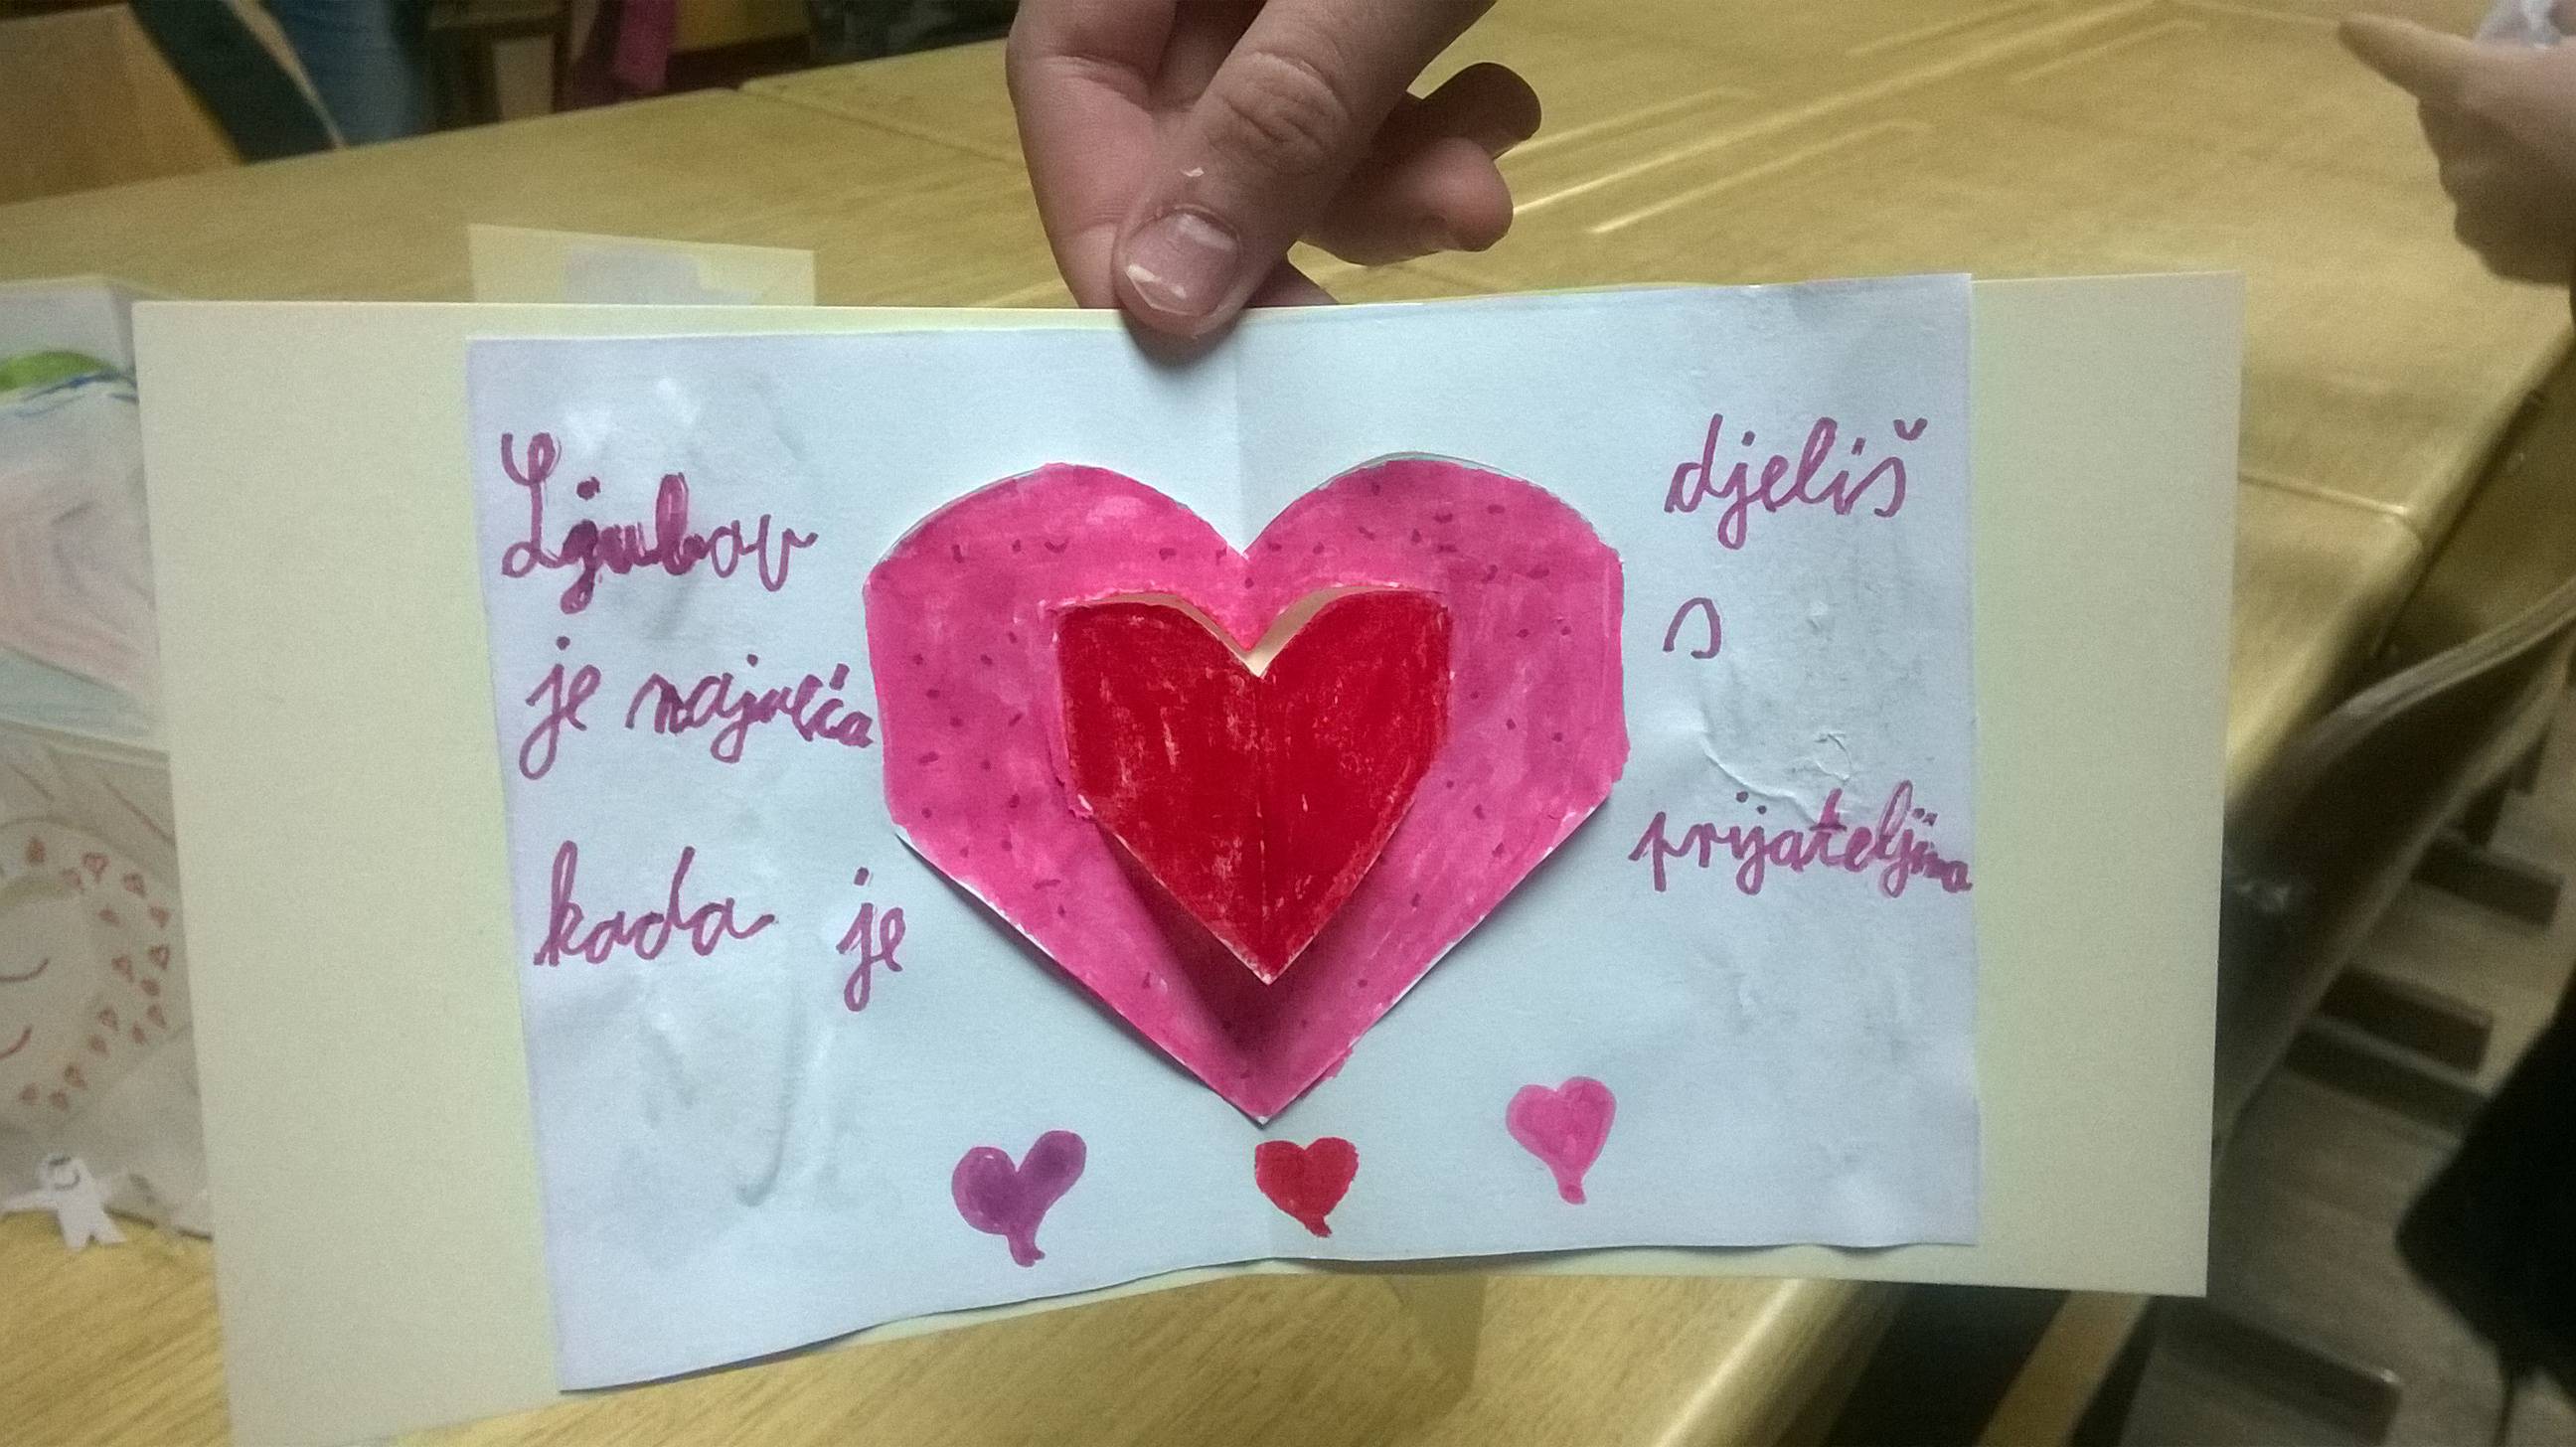 Ljubav
je najveća
kada je
djeliš
s
prijateljima